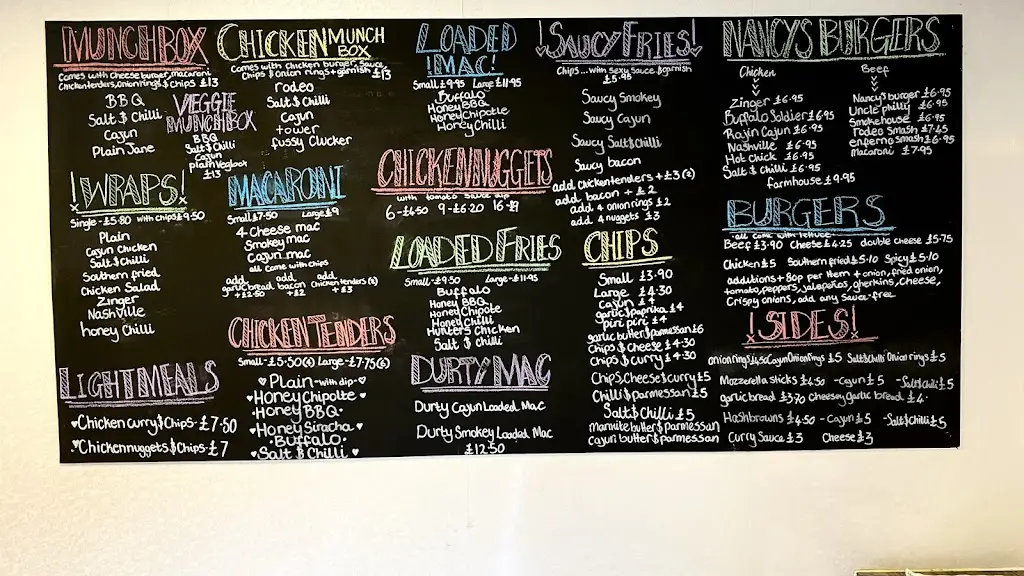 MUNCHBOX
Comes with cheeseburger, macaroni
Chickentenders, Onionrings $ Chips £13
BBQ
Salt $ Chilli
Cajun
Plain Jane
VEGGIE
MUNCHBOX
BBQ
Salt $ Chilli
Cajun
plain Vegbox
£13
CHICKEN MUNCH
BOX
Comes with chicken burger, sauce,
Chips $ Onion rings + garnish £13
rodeo
Salt $ Chilli
Cajun
tower
fussy Clucker
LOADED
!MAC!
Small £9.95 Large £11.95
Buffalo
Honey BBQ
Honey Chipotle
Honey Chilli
!SAUCY FRIES!
Chips...with sexy sauce $ garnish
£5.95
Saucy Smokey
Saucy Cajun
Saucy Salt $ Chilli
Saucy bacon
add Chickentenders + £3 (2)
add bacon + £2
add 4 onion rings £2
add 4 nuggets £3
NANCYS BURGERS
Chicken
Zinger £6.95
Buffalo Soldier £6.95
Rajin Cajun £6.95
Nashville £6.95
Hot Chick £6.95
Salt $ Chilli £6.95
Beef
Nancy's burger £6.95
Uncle philly £6.95
Smokehouse £6.95
Rodeo Smash £7.45
enferno smash £6.95
macaroni £7.95
farmhouse £9.95
!WRAPS!
Single - £5.80 with chips £9.50
Plain
Cajun Chicken
Salt $ Chilli
Southern fried
Chicken Salad
Zinger
Nashville
honey Chilli
MACARONI
Small £7.50 Large £9
4 Cheese mac
Smokey mac
Cajun mac
all Come with chips
add garlic bread + £2.50
add bacon + £2
add Chicken tenders (2) + £3
CHICKEN NUGGETS
with tomato sauce dip
6 - £4.50 9 - £6.20 16 - £9
LOADED FRIES
Small - £9.50 Large - £11.95
Buffalo
Honey BBQ
Honey Chipote
Honey Chilli
Hunters Chicken
Salt $ chilli
CHIPS
Small £3.90
Large £4.30
Cajun £4
garlic $ paprika £4
piri piri £4
garlic butter $ parmesan £6
Chips $ Cheese £4.30
Chips $ curry £4.30
Chips, Cheese $ curry £5
Chilli $ parmesan £5
Salt $ Chilli £5
marmite butter $ parmessan
Cajun butter $ parmessan
BURGERS
.all come with lettuce.
Beef £3.90 Cheese £4.25 double cheese £5.75
Chicken £5 Southern fried £5.10 Spicy £5.10
additions + 80p per item + onion, fried onion,
tomato, peppers, jalapeños, gherkins, Cheese,
Crispy onions, add any sauce-free
CHICKEN TENDERS
Small - £5.50 (4) Large - £7.75 (6)
Plain - with dip
Honey Chipolte
Honey BBQ
Honey Siracha
Buffalo
Salt $ Chilli
!SIDES!
onion rings £4.50 Cajun Onion rings £5 Salt $ Chilli Onion rings £5
Mozzerella sticks £4.50 - Cajun £5 - Salt $ Chilli £5
garlic bread £3.70 Cheesey garlic bread £4
Hashbrowns £4.50 - Cajun £5 - Salt $ Chilli £5
Curry Sauce £3 Cheese £3
LIGHT MEALS
Chicken curry $ Chips - £7.50
Chicken nuggets $ Chips - £7
DURTY MAC
Durty Cajun Loaded Mac
Durty Smokey Loaded Mac
£12.50